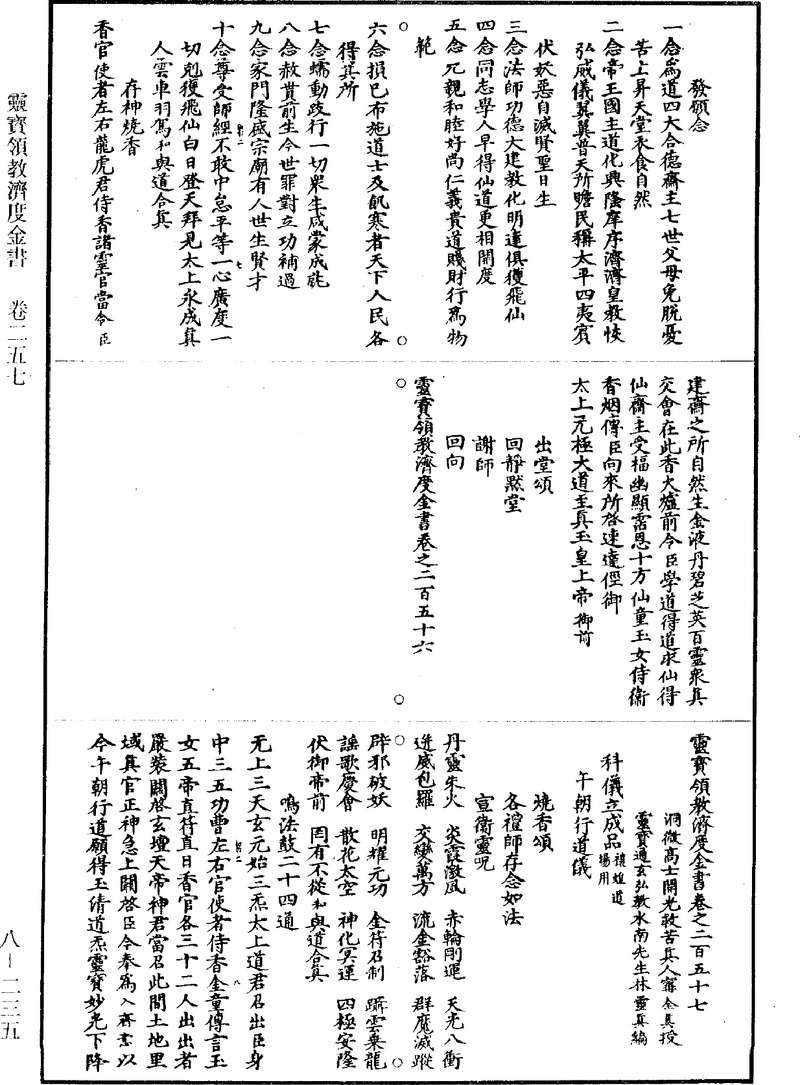 靈寶領教濟度金書　卷二五七
八－二三五
發願念
一念為道四大合德齋主七世父母免脫憂
苦上昇天堂衣食自然
二念帝王國主道化興隆庠序濟濟皇教恢
弘威儀翼翼普天所瞻民稱太平四夷賓
伏妖惡自滅賢聖日生
三念法師功德大建教化明達俱獲飛仙
四念同志學人早得仙道更相開度
五念九親和睦好尚仁義貴道賤財行為物
範
六念損已布施道士及飢寒者天下人民各
得其所
七念蠕動跂行一切眾生咸蒙成就
八念赦貰前生今世罪對立功補過
九念家門隆盛宗廟有人世生賢才
十念尊受師經不敢中怠平等一心廣度一
切剋獲飛仙白日登天拜見太上永成真
人雲車羽駕和與道合真
存神燒香
香官使者左右龍虎君侍香諸靈官當令臣
建齋之所自然生金液丹碧芝英百靈眾真
交會在此香火爐前令臣學道得道求仙得
仙齋主受福幽顯霑恩十方仙童玉女侍衛
香烟傳臣向來所啓速達徑御
太上无極大道至真玉皇上帝御前
出堂頌
回靜默堂
謝師
回向
靈寶領教濟度金書卷之二百五十六
靈寶領教濟度金書卷之二百五十七
洞微高士開光救苦真人甯全真授
靈寶通玄弘教水南先生林靈真編
科儀立成品 禳煌道場用
午朝行道儀
燒香頌
各禮師存念如法
宣衛靈呪
丹靈朱火　炎霞激風　赤輪剛運　天光八衝
迸威包羅　交變萬方　流金豁落　群魔滅蹤
辟邪破妖　明耀元功　金符召制　躡雲乘龍
謠歌慶會　散花太空　神化冥運　四極安隆
伏御帝前　罔有不從和與道合真
鳴法鼓二十四通
无上三天玄元始三炁太上道君召出臣身
中三五功曹左右官使者侍香金童傳言玉
女五帝直符直日香官各三十二人出出者
嚴裝關啓玄壇天帝神君當召此間土地里
域真官正神急上關啓臣今奉為入齋意以
今午朝行道願得玉清道炁靈寶妙光下降